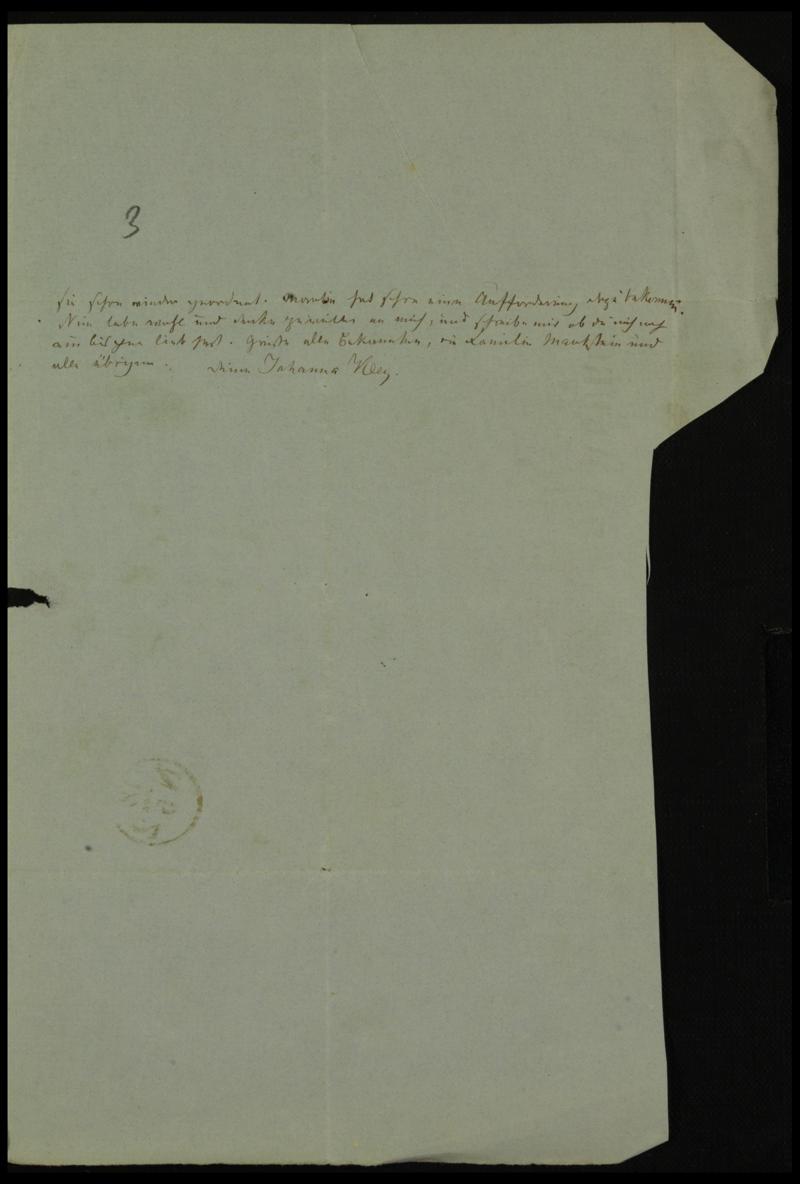 3
sie schon wieder geordnet. Martin hat schon eine Aufforderung dazu bekommen.
Nun lebe wohl und denke zuweilen an mich, und schreibe mir ob du mich noch
ein bischen lieb hast. Grüße alle Bekannten, die Familie Markstein und
alle übrigen. Deine Johanna Kley.